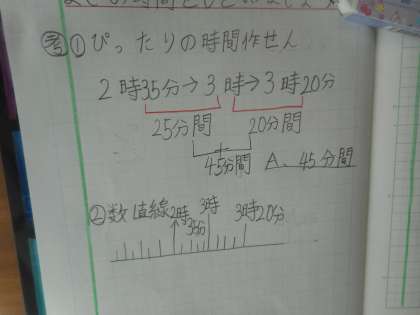 考①ぴったりの時間作せん
2時35分→3時→3時20分
25分間 20分間
45分間 A、45分間
②数値線 2時35分 3時 3時20分